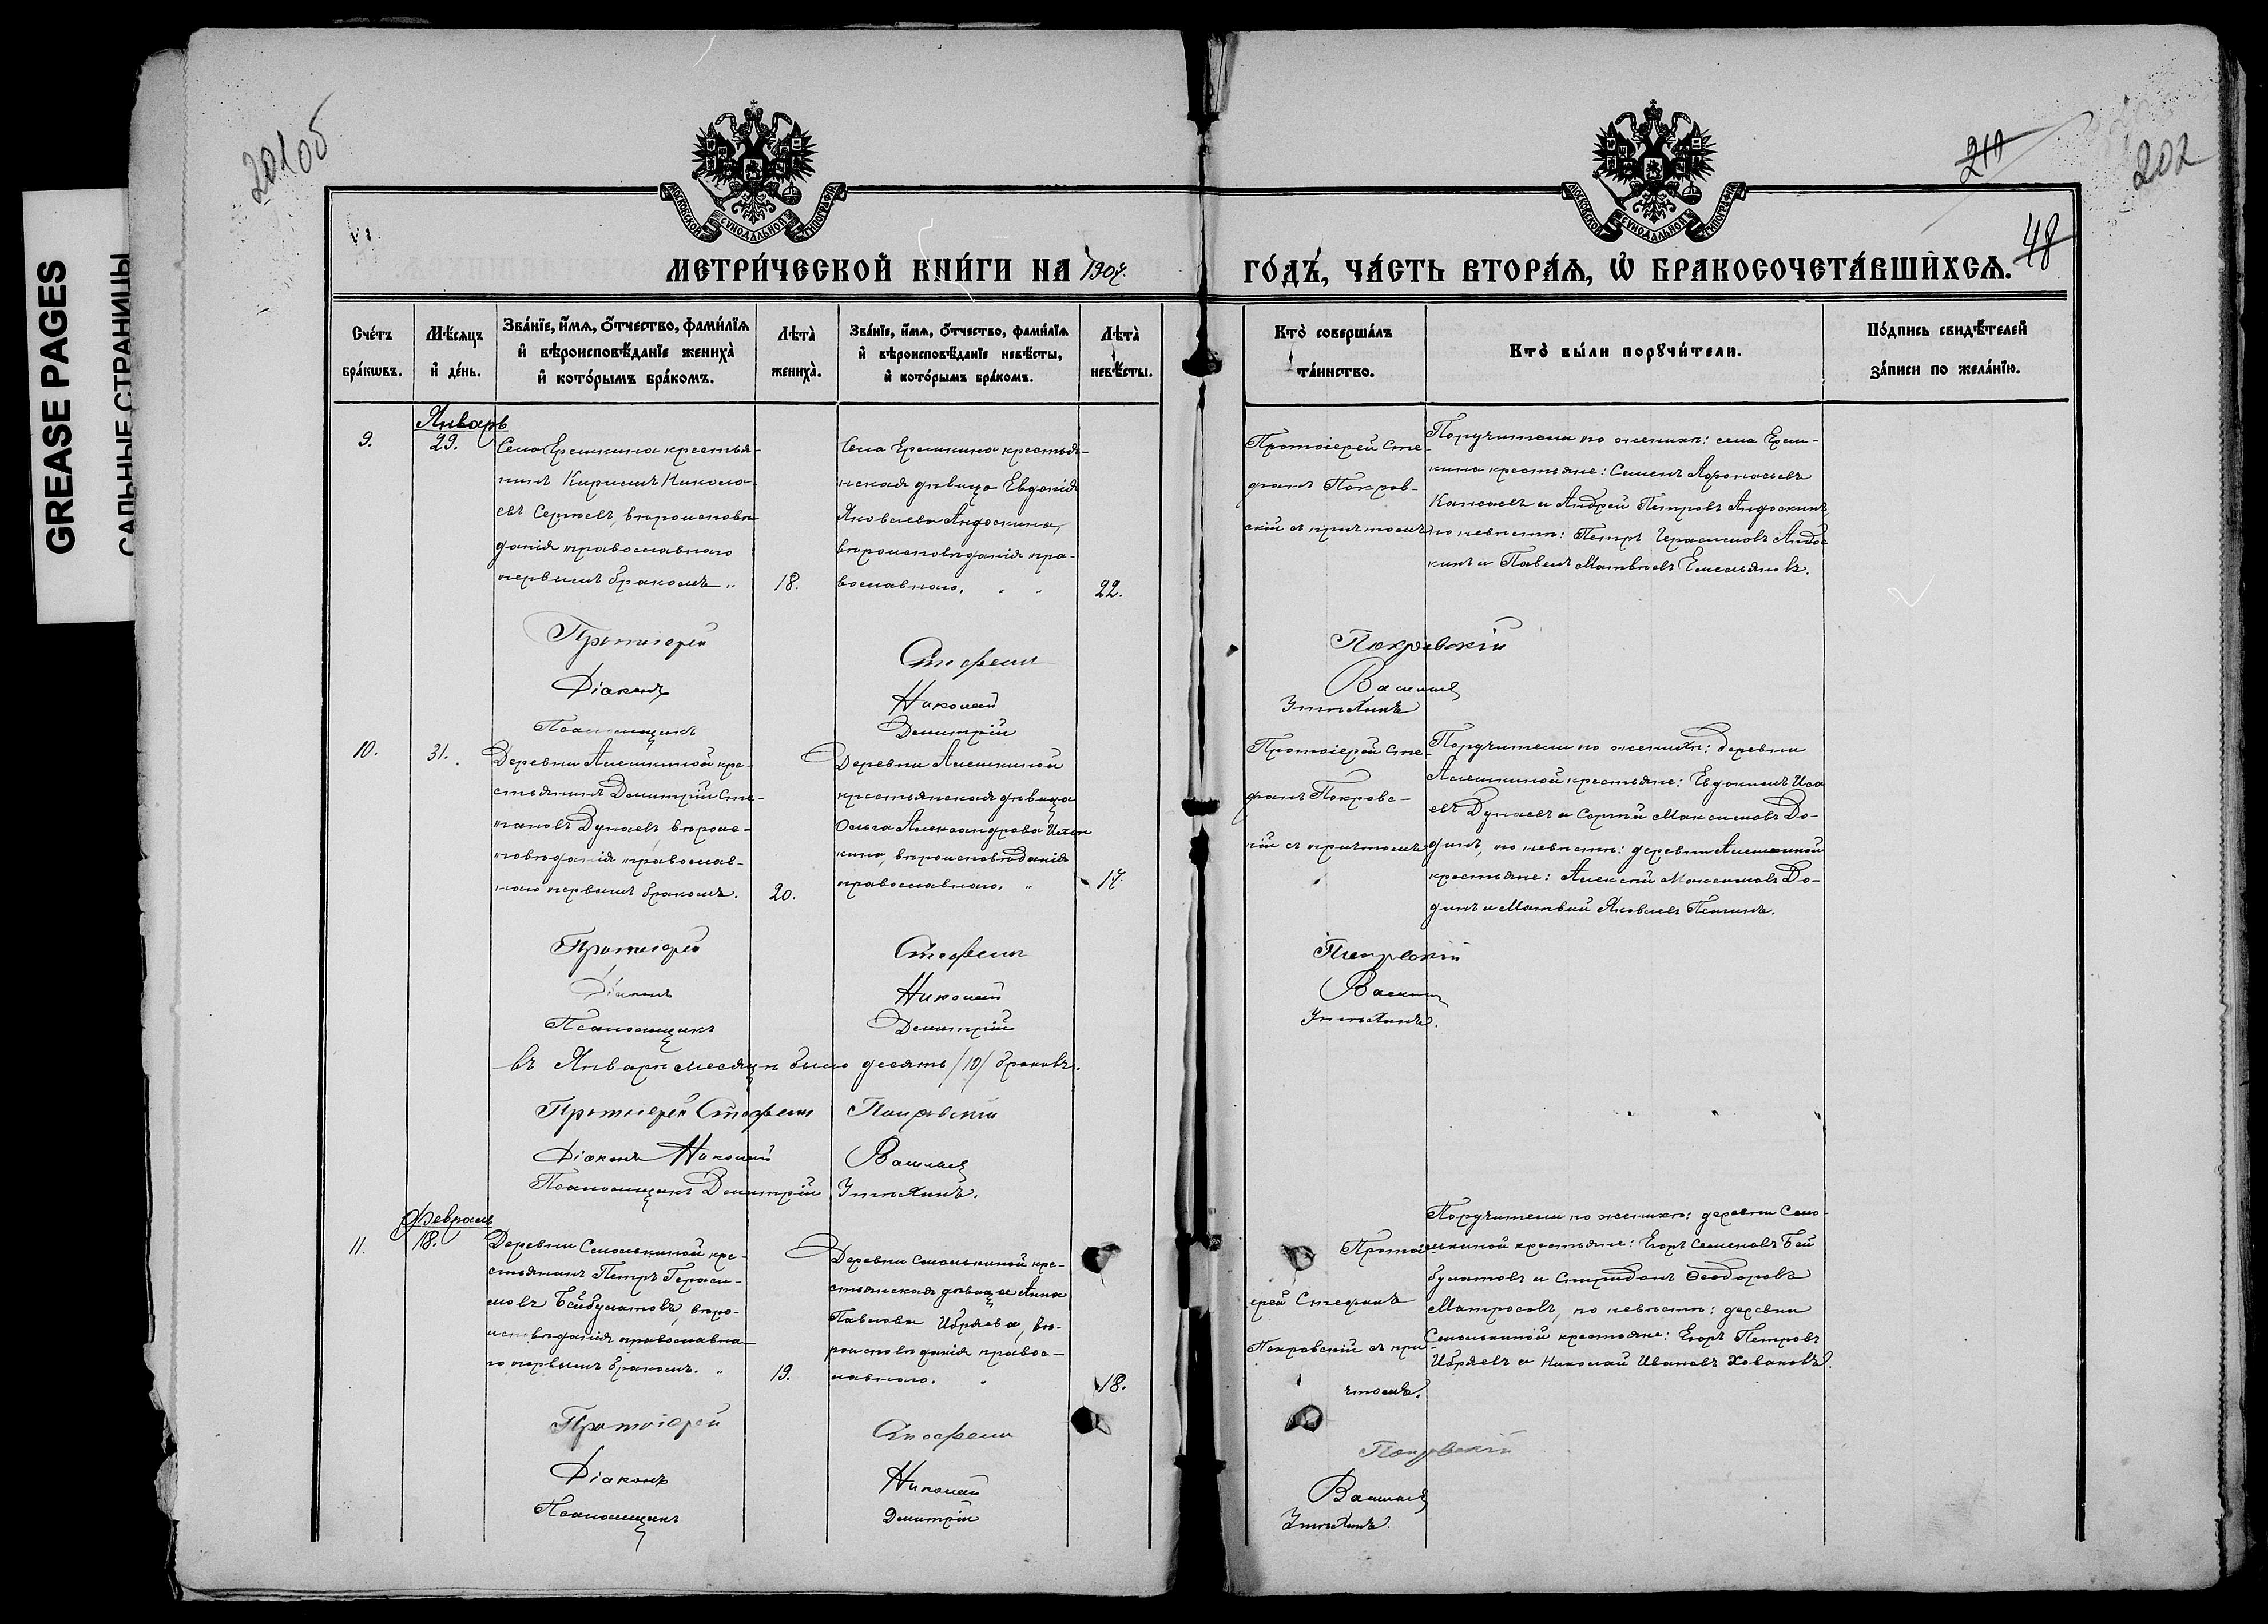 GREASE PAGES
САЛЬНЫЕ СТРАНИЦЫ
201об
210
202
48
МОСКОВСКОЙ СѴНОДАЛЬНОЙ ТИПОГРАФІИ
МОСКОВСКОЙ СѴНОДАЛЬНОЙ ТИПОГРАФІИ
МЕТРИ́ЧЕСКОЙ КНИ́ГИ НА 1907.
ГО́ДЪ, ЧА́СТЬ ВТОРА́Ѧ, Ѽ БРАКОСОЧЕТА́ВШИХСѦ.
Сче́тъ
бра́кѡвъ.
Мѣ́сѧцъ
и҆ де́нь.
Зва́нїе, и҆́мѧ, ѻ҆́тчество, фами́лїѧ
и҆ вѣроисповѣ́данїе жениха̀
и҆ кото́рымъ бра́комъ.
Лѣта̀
жениха̀.
Зва́нїе, и҆́мѧ, ѻ҆́тчество, фами́лїѧ
и҆ вѣроисповѣ́данїе невѣ́сты,
и҆ кото́рымъ бра́комъ.
Лѣта̀
невѣ́сты.
Кто̀ соверша́лъ
та́инство.
Кто̀ бы́ли порꙋчи́тели.
По́дпись свидѣ́телей
за́писи по жела́нїю.
Январь
9.
29.
Села Ерешкина крестья-
нинъ Кириллъ Никола-
евъ Сергѣевъ, вѣроисповѣ-
данія православнаго
первымъ бракомъ
18.
Села Ерешкина крестья-
нская дѣвица Евдокія
Яковлева Андоскина,
вѣроисповѣданія пра-
вославнаго.
22.
Протоіерей Сте-
фанъ Покров-
скій съ причтомъ
Поручители по женихѣ: села Ереш-
кина крестьяне: Семенъ Афонасьевъ
и Андрей Петровъ Андоскинъ,
по невѣстѣ: Петръ Герасимовъ Андос
кинъ и Павелъ Матвѣевъ Емельяновъ.
Протоіерей Стефанъ Покровскій
Діаконъ Николай
Псаломщикъ Димитрій
10.
31.
Деревни Алешкиной кре-
стьянинъ Димитрій Сте-
пановъ Дунаевъ, вѣроис-
повѣданія православ-
наго первымъ бракомъ.
20.
Деревни Алешкиной
крестьянская дѣвица
Ольга Александрова
вѣроисповѣданія
православнаго.
17.
Протоіерей Сте-
фанъ Покровс-
кій съ причтомъ
Поручители по женихѣ: деревни
Алешкиной крестьяне: Евдокимъ Иса
евъ Дунаевъ и Сергѣй Максимовъ До-
динъ, по невѣстѣ: деревни Алешкиной
крестьяне: Алексѣй Максимовъ До-
динъ и Матвѣй Яковлевъ
Протоіерей Стефанъ Покровскій
Діаконъ Николай
Псаломщикъ Димитрій
въ Январѣ месяцѣ было десять /10/ браковъ.
Протоіерей Стефанъ Покровскій
Діаконъ Николай
Псаломщикъ Димитрій
Февраль
11.
18.
Деревни Смолькиной кре-
стьянинъ Петръ Гераси-
мовъ Байбулатовъ, вѣро-
исповѣданія православна-
го первымъ бракомъ.
19.
Деревни Смолькиной кре-
стьянская дѣвица Анна
Павлова Ибряева, вѣ-
роисповѣданія правос-
лавнаго.
18.
Протоі-
ерей Стефанъ
Покровскій съ при-
чтомъ.
Поручители по женихѣ: деревни Смо-
лькиной крестьяне: Егоръ Семеновъ Бай
булатовъ и Спиридонъ Ѳеодоровъ
Матросовъ, по невѣстѣ: деревни
Смолькиной крестьяне: Егоръ Петровъ
Ибряевъ и Николай Ивановъ Ховановъ.
Протоіерей Стефанъ Покровскій
Діаконъ Николай
Псаломщикъ Димитрій